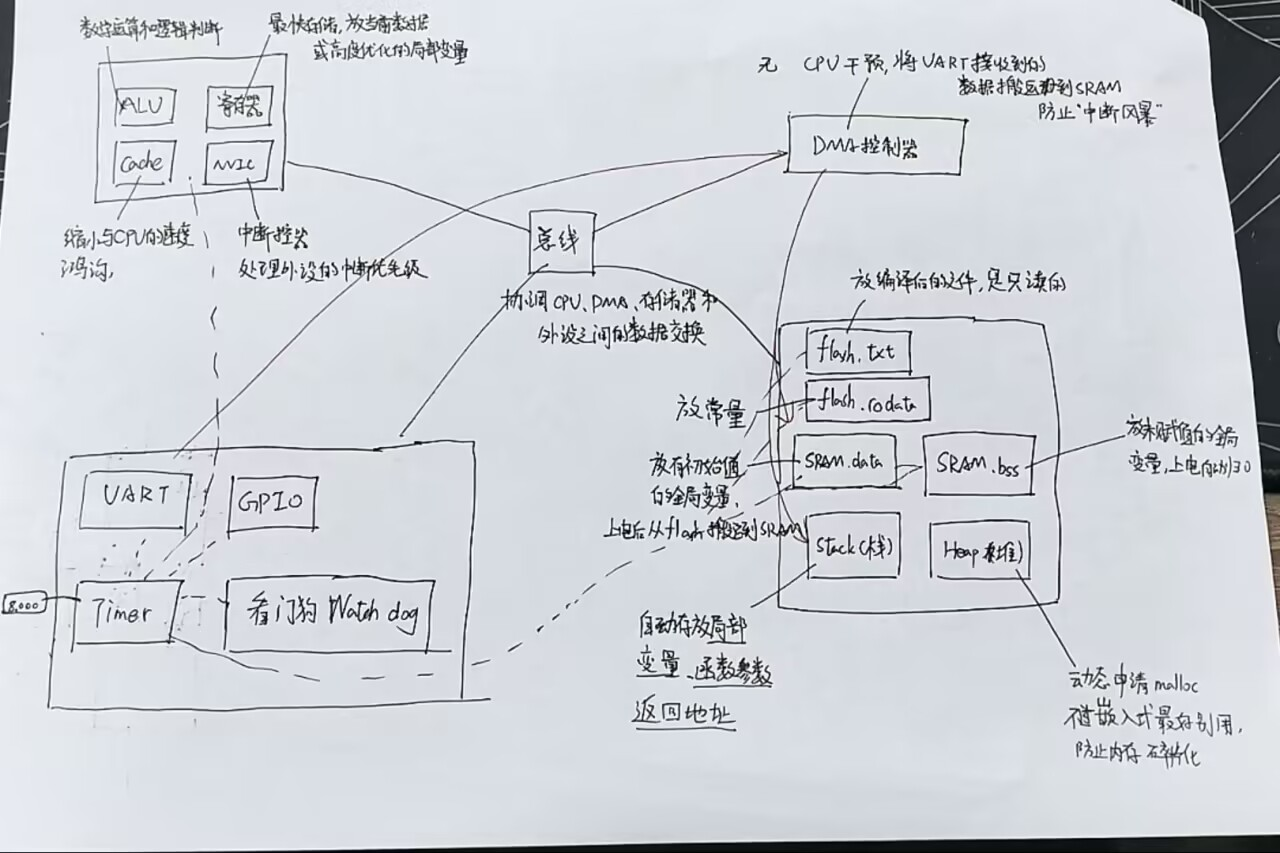 数学运算和逻辑判断
最快存储,放当前数据
或高度优化的局部变量
ALU
寄存器
Cache
NVIC
缩小与CPU的速度
鸿沟.
中断控器
处理外设的中断优先级
无 CPU干预,将UART接收到的
数据搬运到SRAM
防止"中断风暴"
DMA控制器
总线
协调CPU、DMA、存储器和
外设之间的数据交换
放编译后的文件,是只读的
flash.txt
flash.rodata
放常量
SRAM.data
放有初始值
的全局变量,
上电后从flash搬运到SRAM
SRAM.bss
放未赋值的全局
变量,上电自动归0
Stack(栈)
自动存放局部
变量、函数参数
返回地址
Heap(堆)
动态申请malloc
嵌入式最好别用,
防止内存碎片化
UART
GPIO
8,000
Timer
看门狗 Watch dog